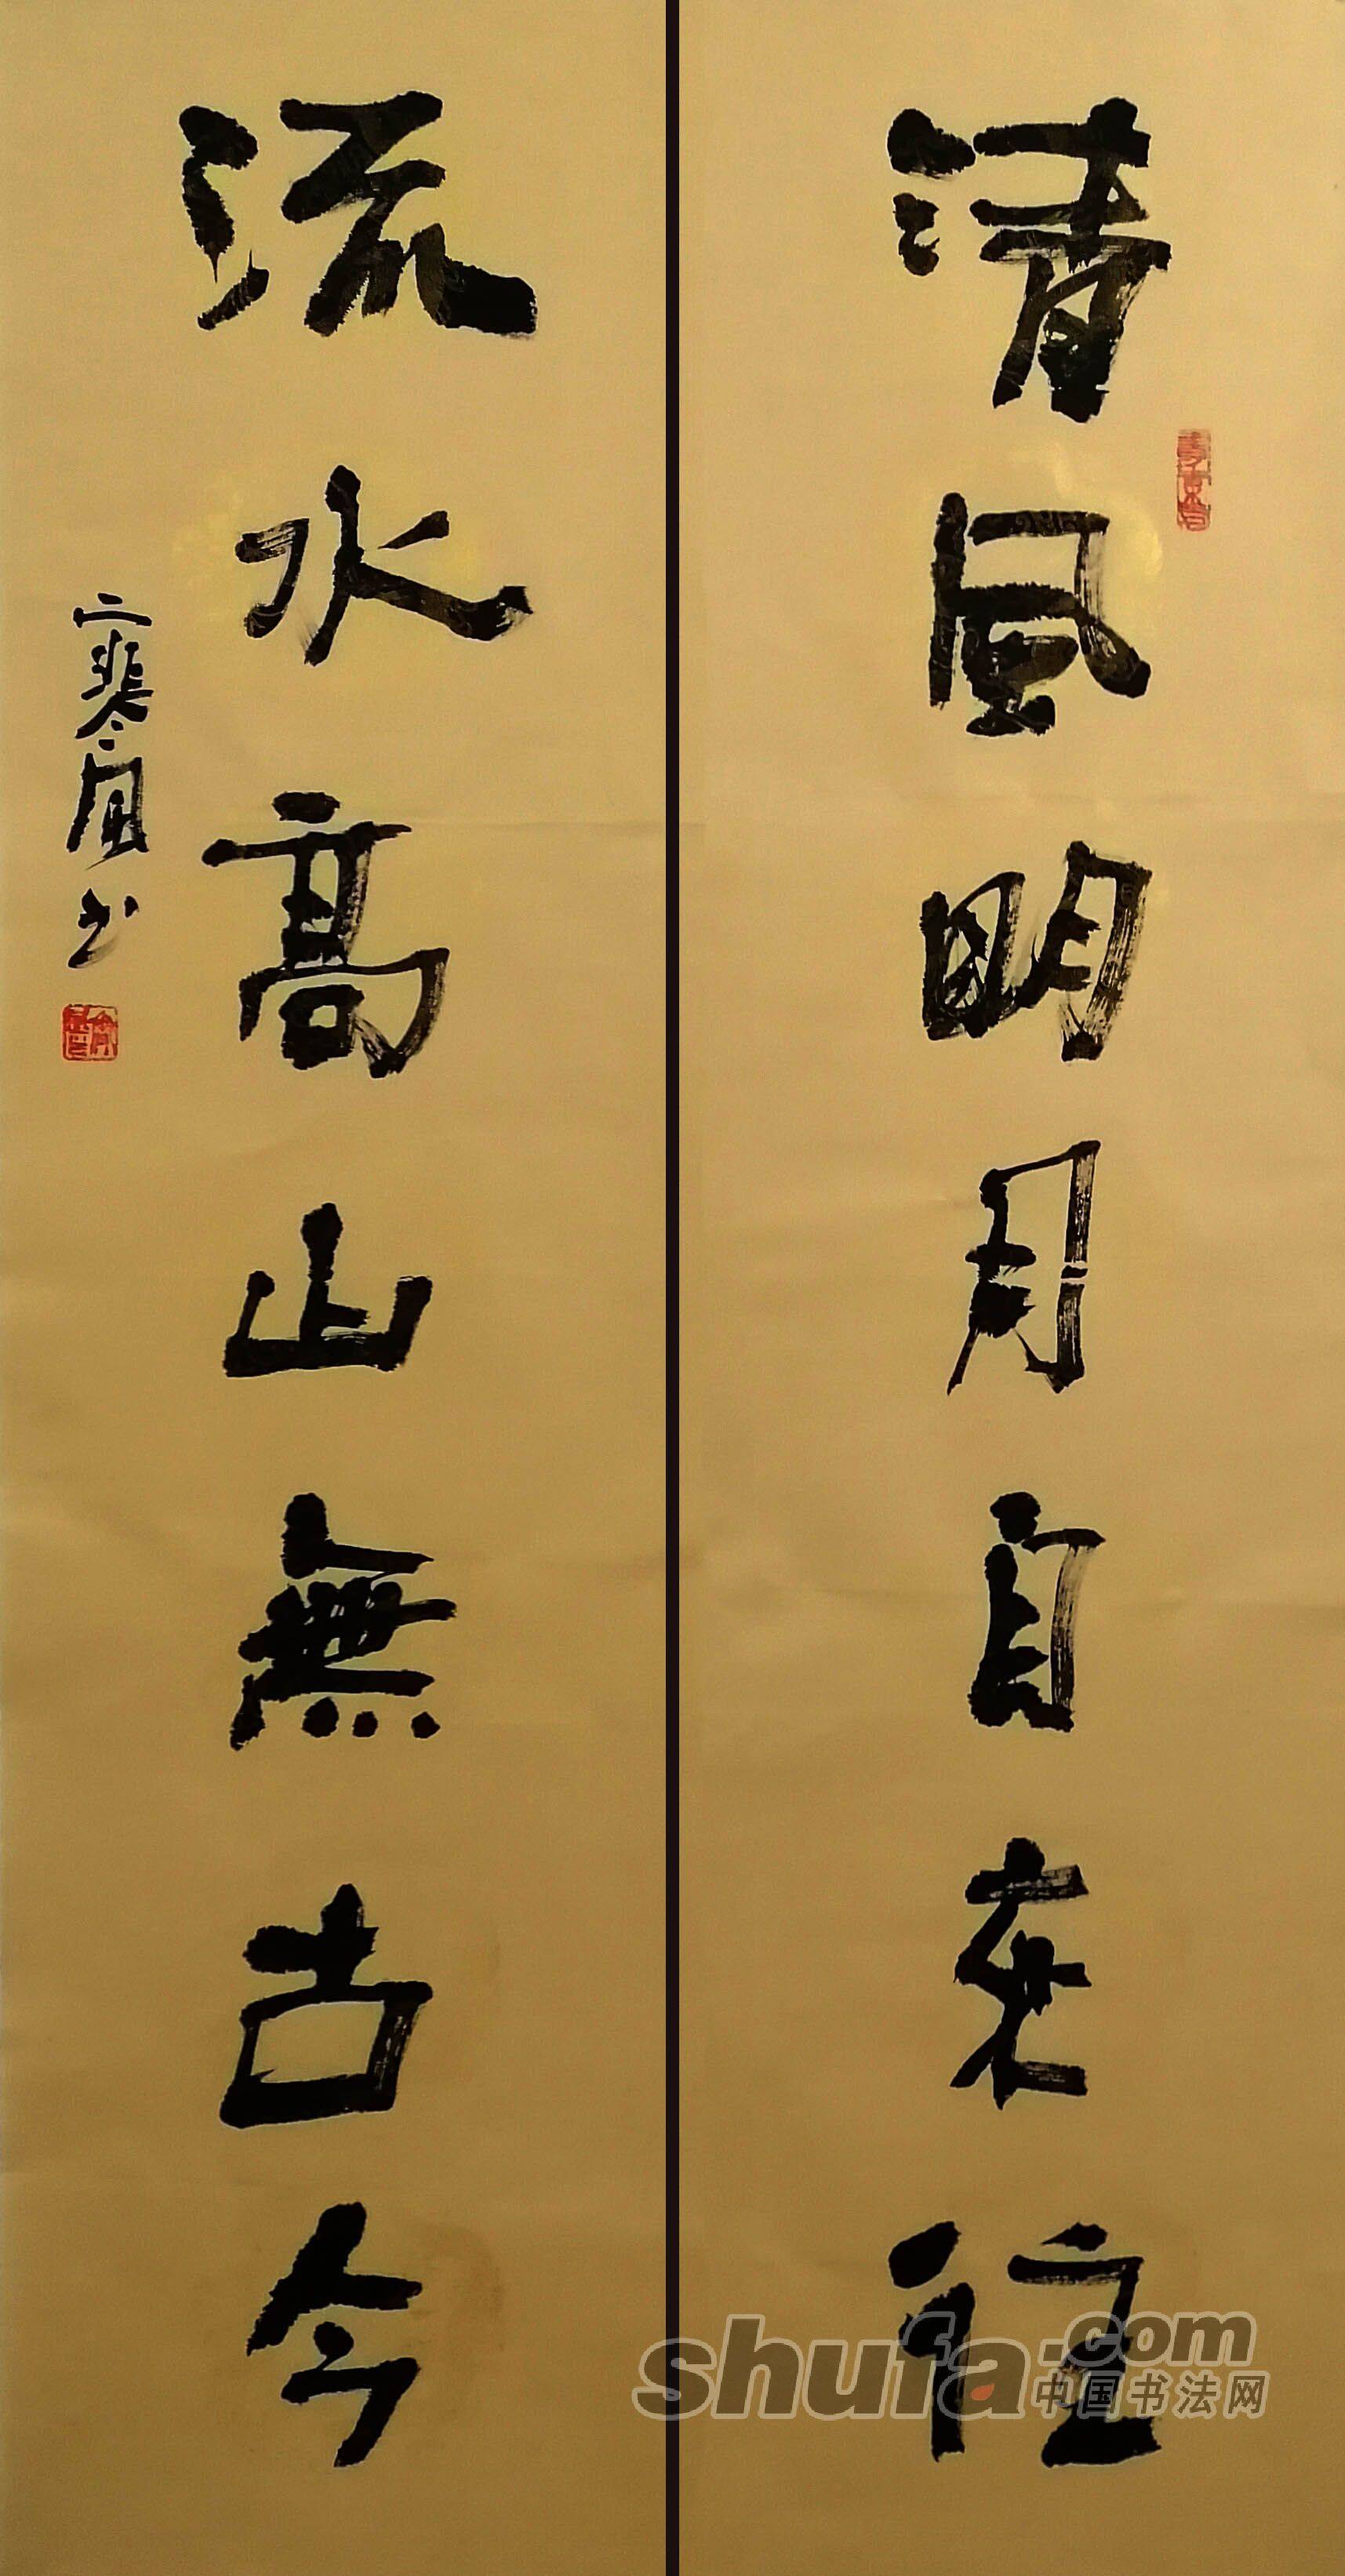 清風明月自来往
流水高山無古今
shufa.com
中国书法网